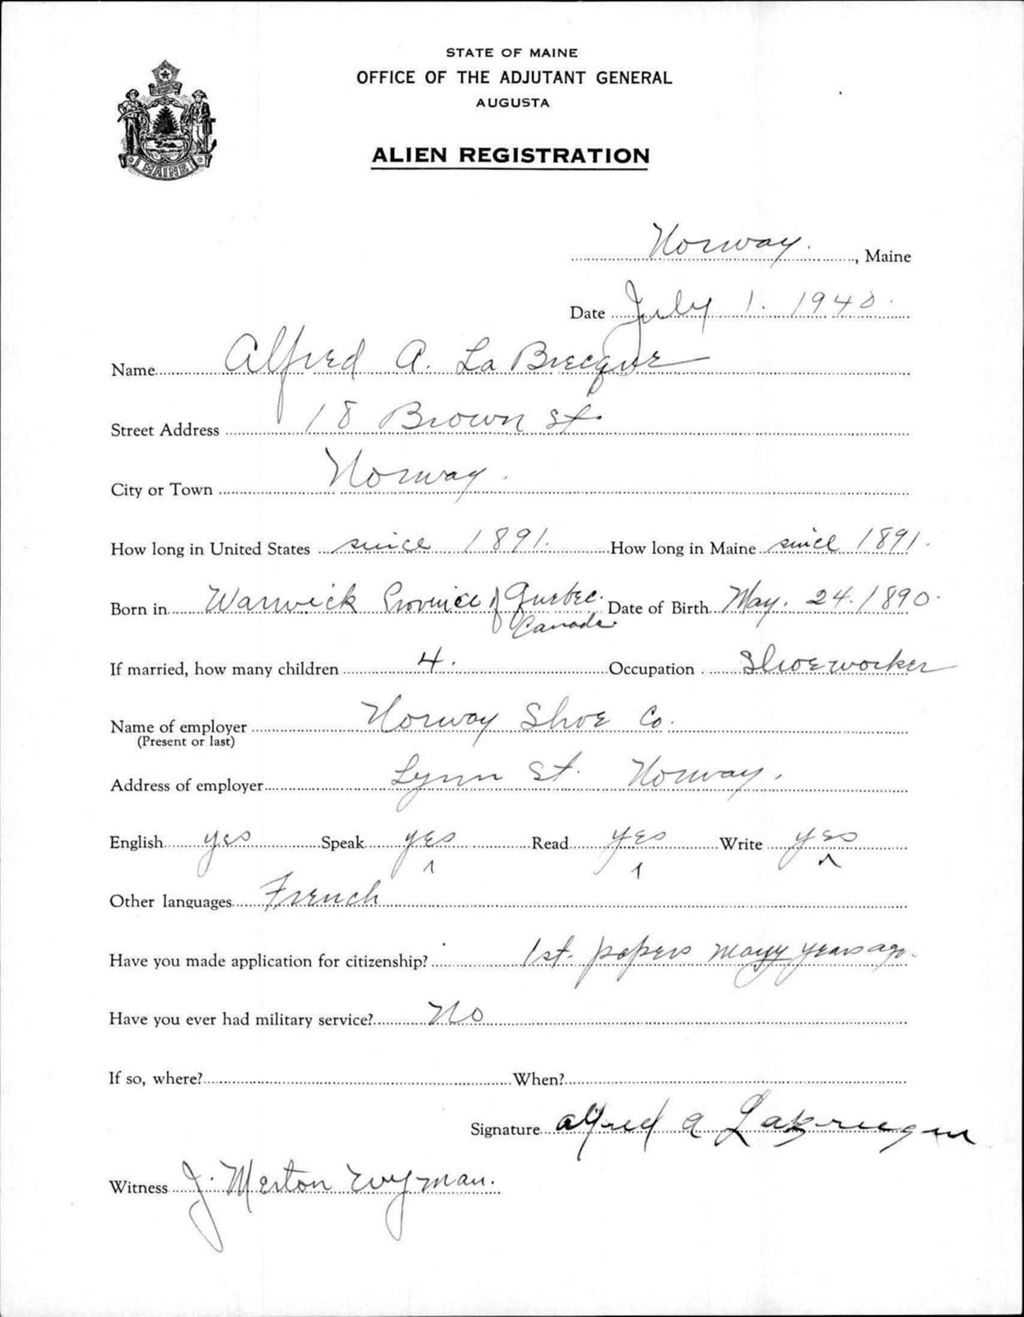 STATE OF MAINE
OFFICE OF THE ADJUTANT GENERAL
AUGUSTA
ALIEN REGISTRATION
MAINE
Norway., Maine
Date July 1. 1940.
Name Alfred A. La Brecque
Street Address 18 Brown St.
City or Town Norway.
How long in United States since 1891. How long in Maine since 1891.
Born in Warwick Province of Quebec. Canada. Date of Birth May. 24. 1890.
If married, how many children 4. Occupation Shoeworker
Name of employer Norway Shoe Co.
(Present or last)
Address of employer Lynn St. Norway.
English yes Speak yes Read yes Write yes
Other languages French
Have you made application for citizenship? 1st. papers many years ago.
Have you ever had military service? No
If so, where? When?
Signature Alfred A LaBrecque
Witness J. Merton Wyman.